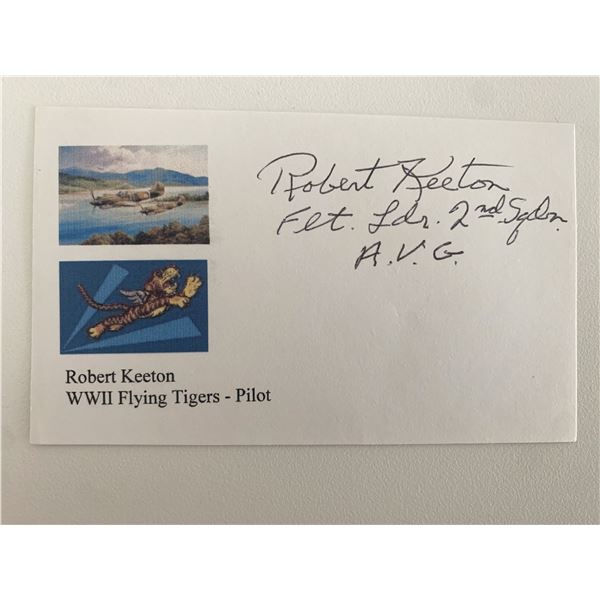 Robert Keeton
Flt. Ldr. 2nd Sqdn.
A.V.G.
Robert Keeton
WWII Flying Tigers - Pilot